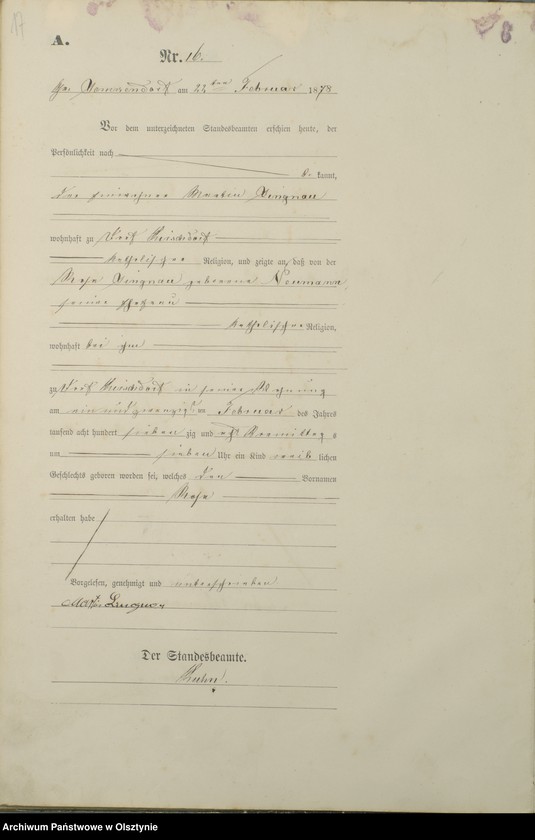 17
A.
Nr. 16.
am 22 ten Februar 1878
Vor dem unterzeichneten Standesbeamten erschien heute, der
Persönlichkeit nach
be kannt,
der Martin
wohnhaft zu Dorf
katholischer Religion, und zeigte an, daß von der
Rosa geborene Neumann
seiner Ehefrau
katholischer Religion,
wohnhaft bei ihm
zu Dorf in seiner Wohnung
am ein und zwanzigsten Februar des Jahres
tausend acht hundert sieben zig und acht Vormittags
um sieben Uhr ein Kind weib lichen
Geschlechts geboren worden sei, welches den Vornamen
Rosa
erhalten habe
Vorgelesen, genehmigt und unterschrieben
Der Standesbeamte.
Archiwum Państwowe w Olsztynie